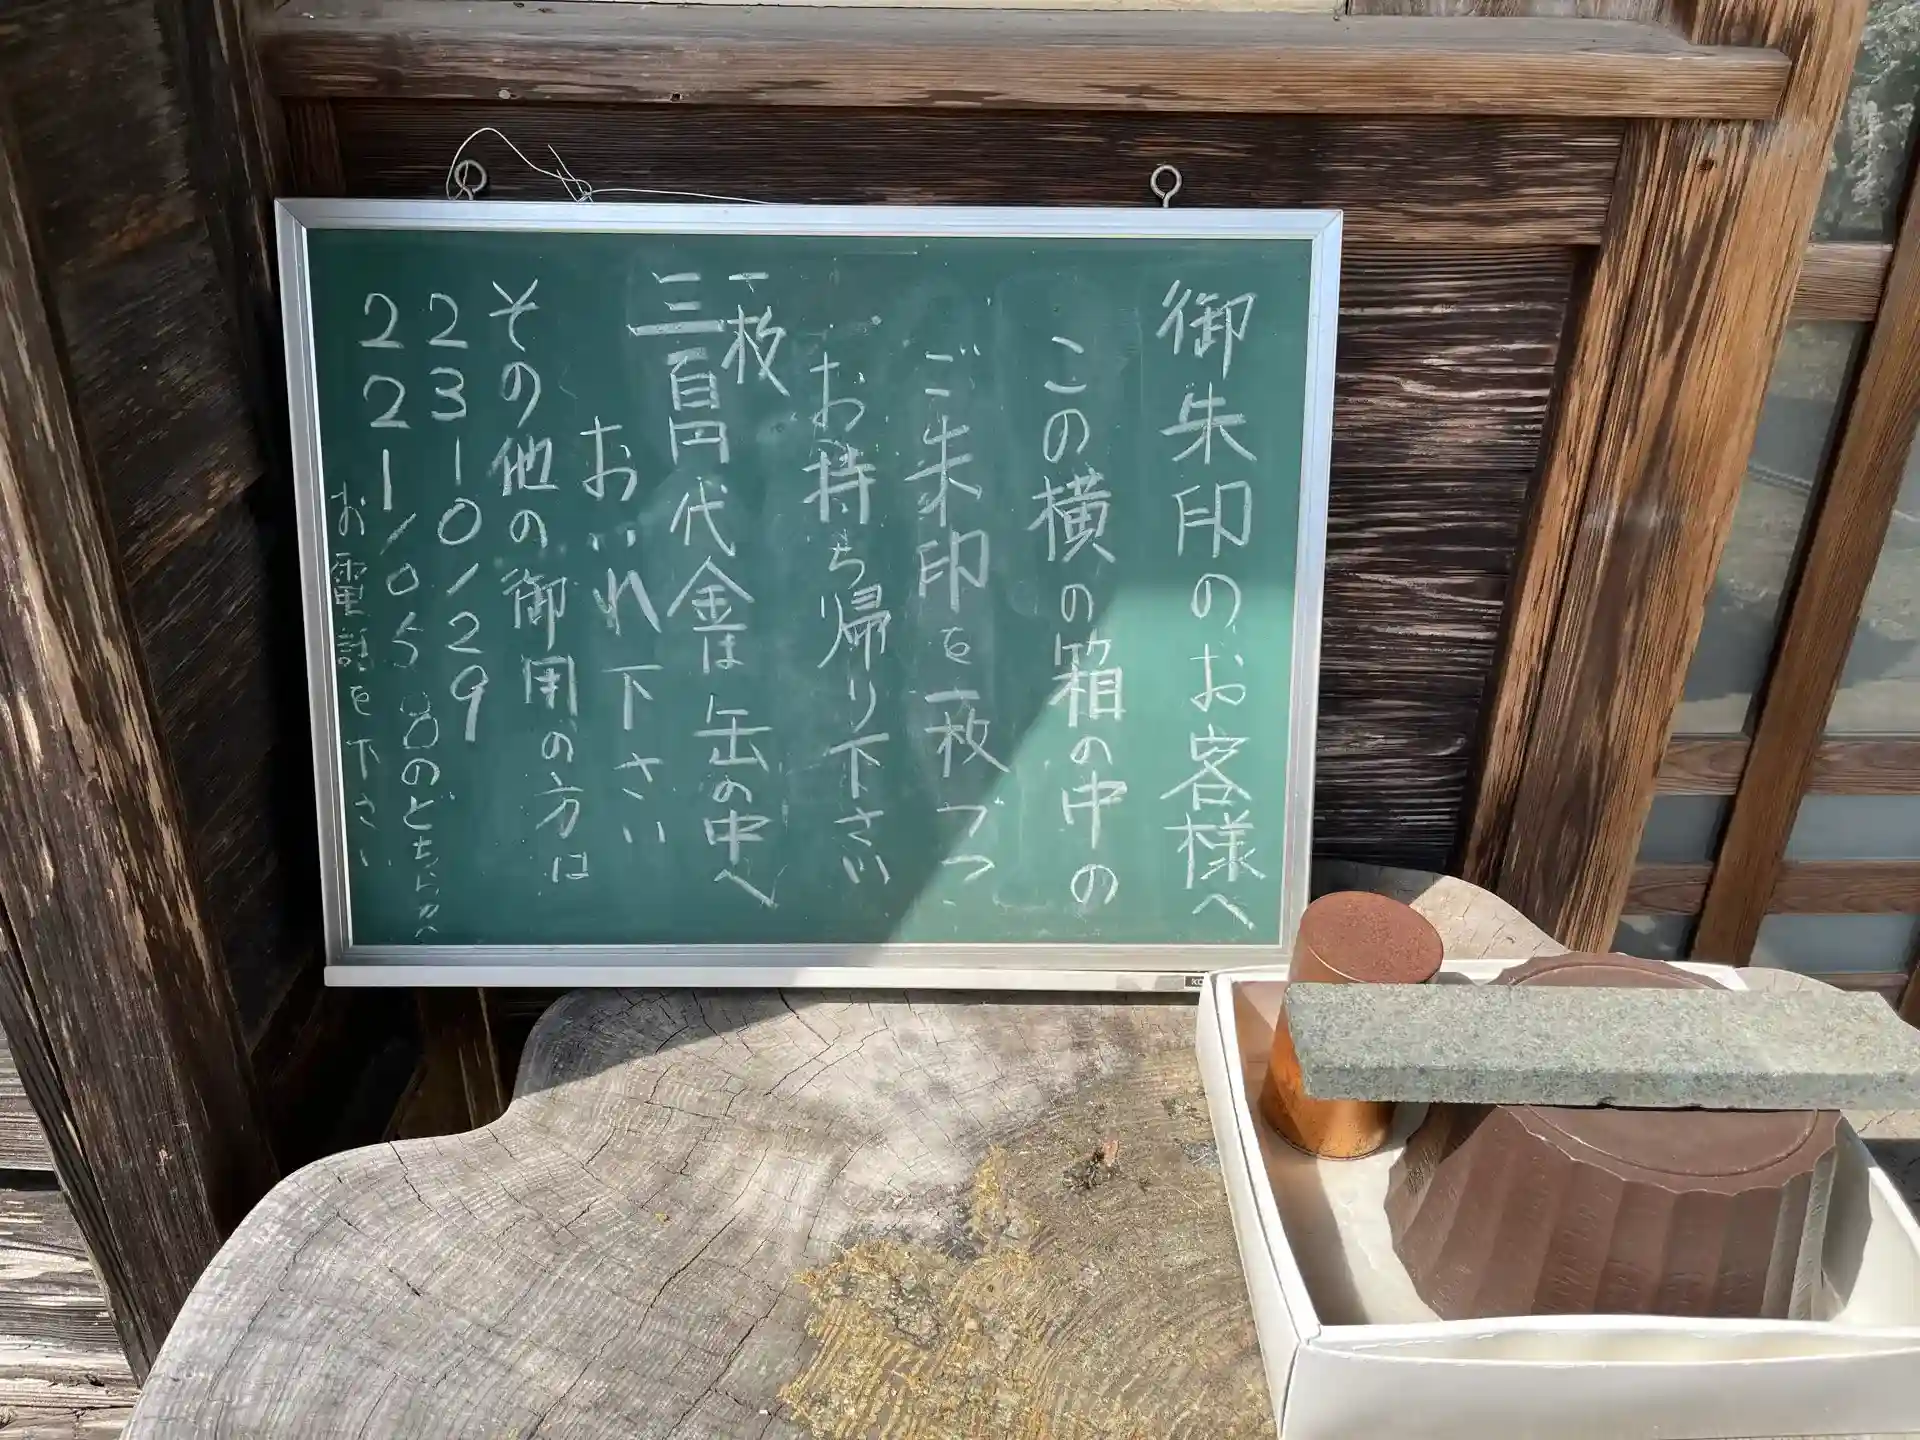 御朱印のお客様へ
この横の箱の中の
ご朱印を一枚づつ
お持ち帰り下さい
一枚
三百円代金は缶の中へ
おいれ下さい
その他の御用の方は
23-0129
221-058のどちらかへ
お電話を下さい